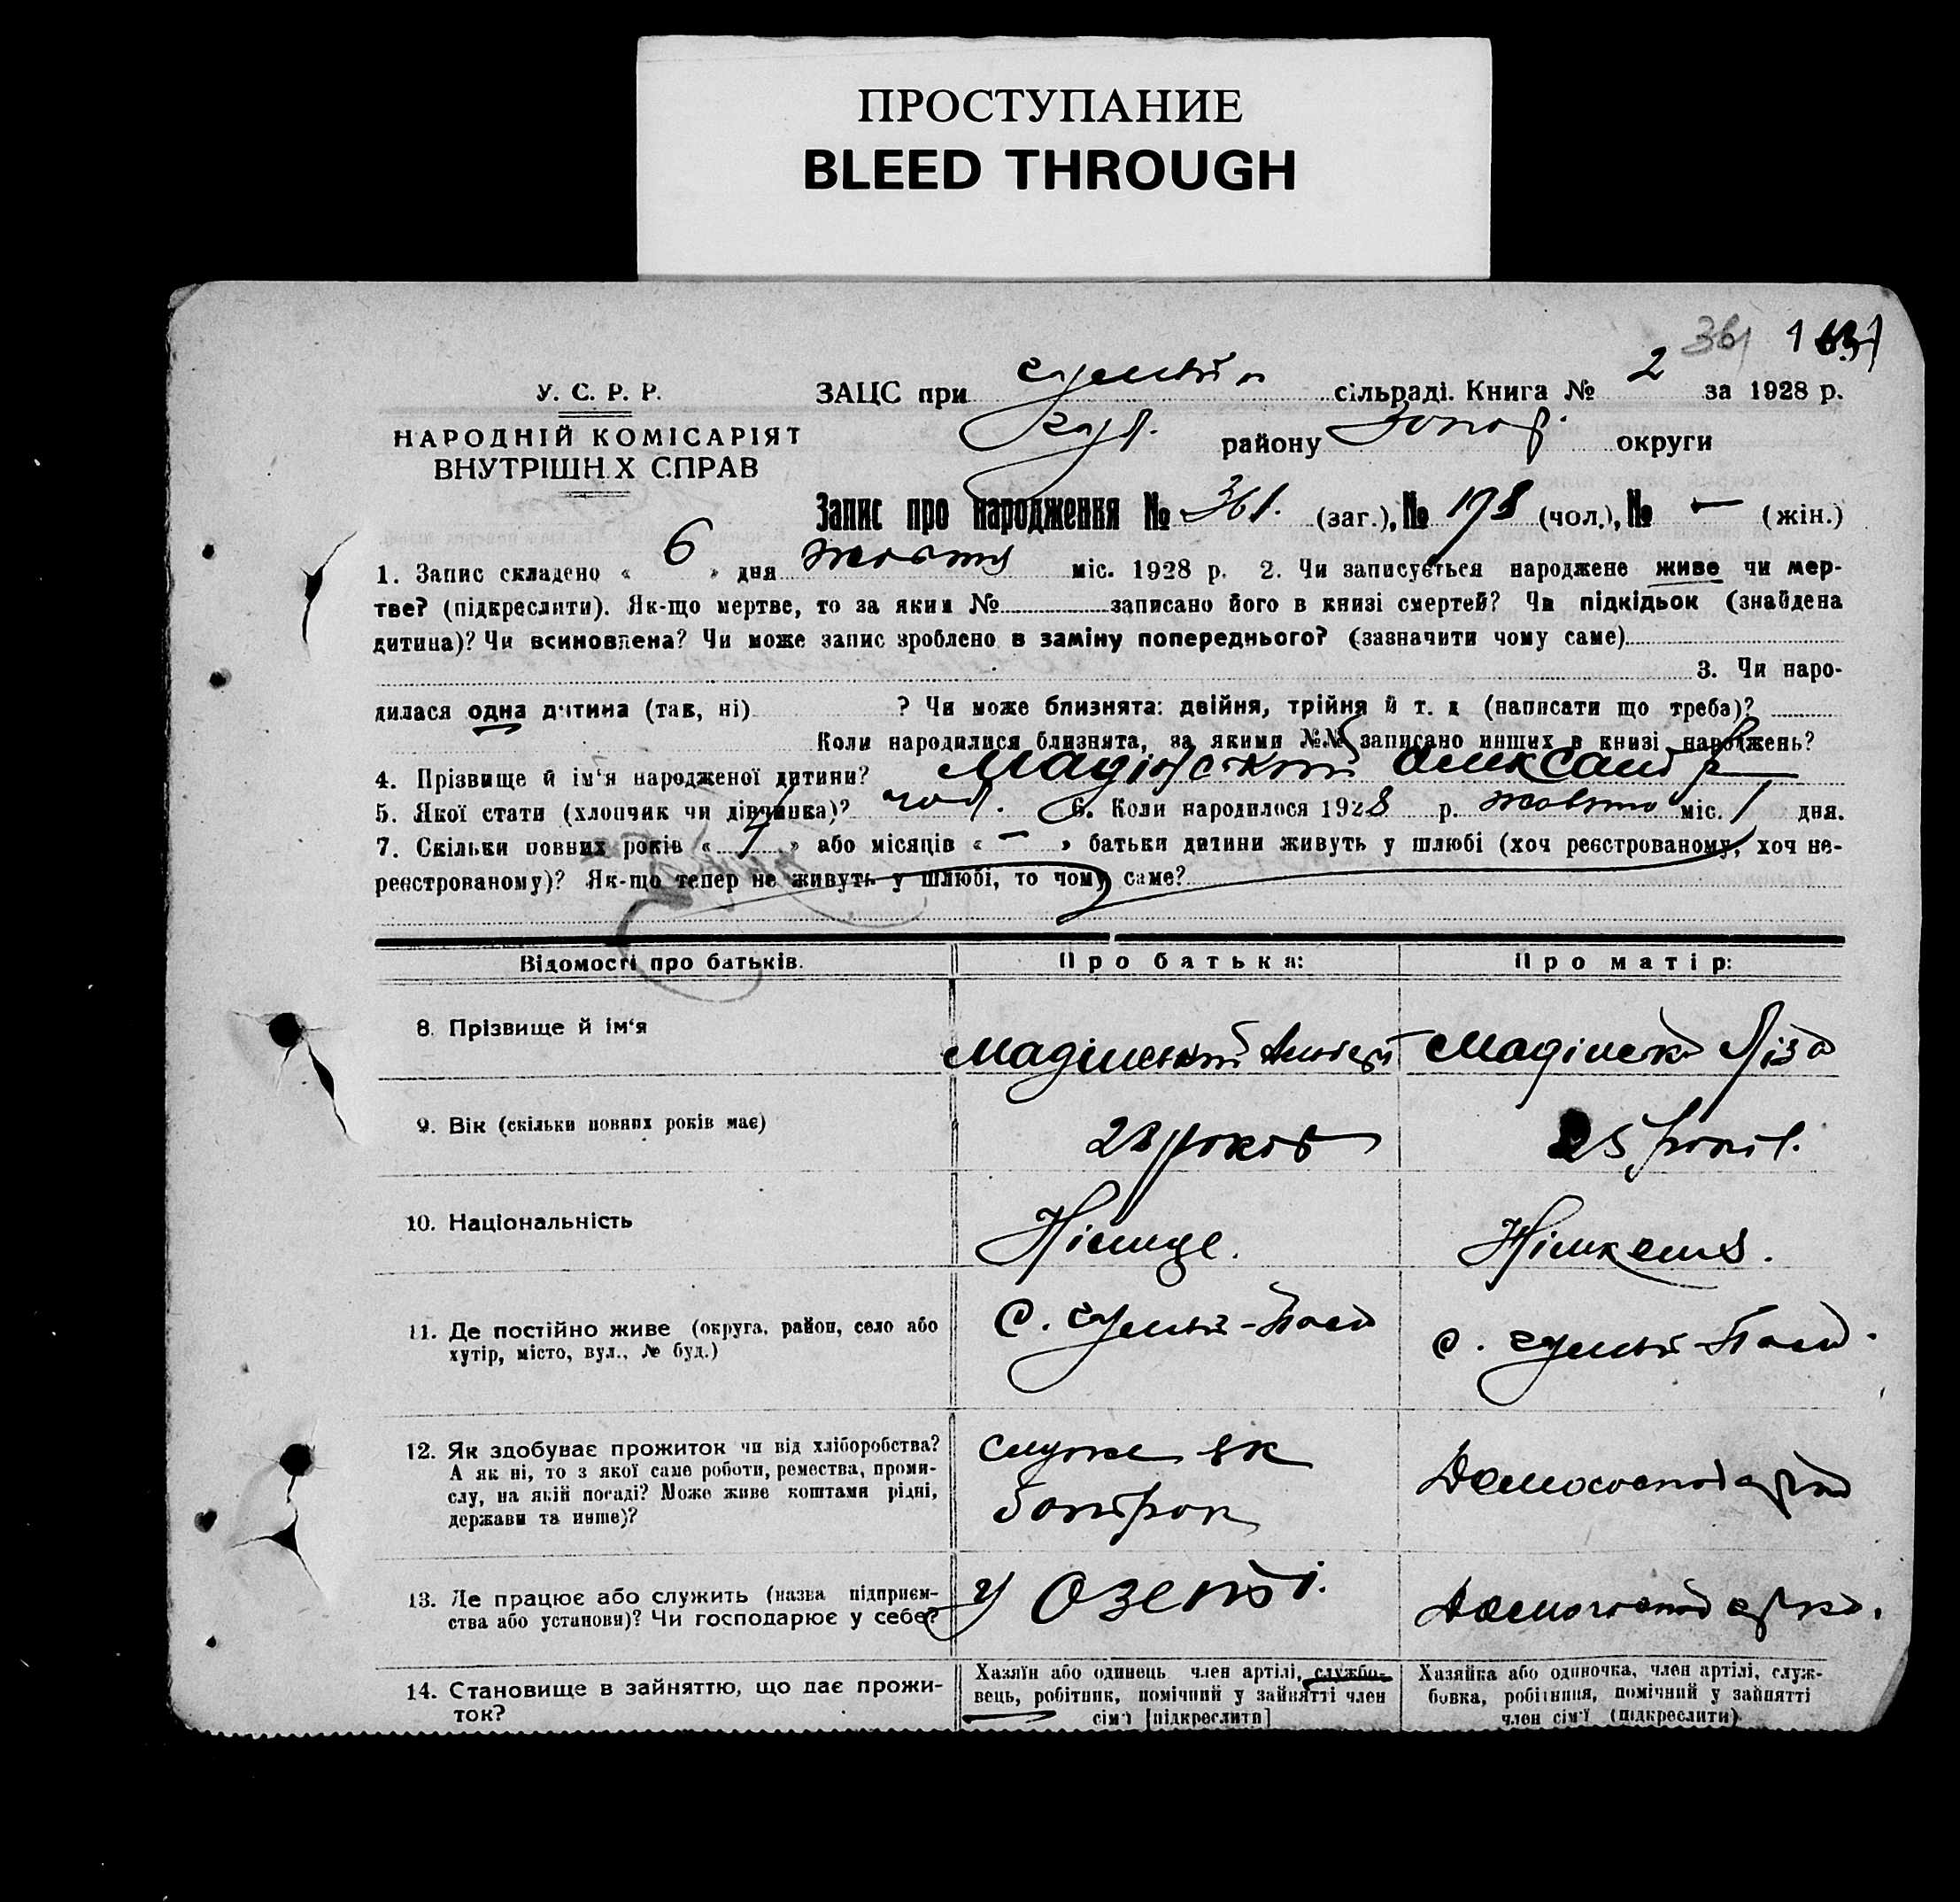 ПРОСТУПАНИЕ
BLEED THROUGH
361
У. С. Р. Р.
НАРОДНІЙ КОМІСАРІЯТ
ВНУТРІШН.Х СПРАВ
ЗАЦС при сільраді. Книга № 2 за 1928 р.
району Запор. округи
Запис про народження № 361. (заг.), № 178 (чол.), № — (жін.)
1. Запис складено « 6 » дня жовтня міс. 1928 р. 2. Чи записується народжене живе чи мер-
тве? (підкреслити). Як-що мертве, то за яким № записано його в книзі смертей? Чи підкідьок (знайдена
дитина)? Чи всиновлена? Чи може запис зроблено в заміну попереднього? (зазначити чому саме)
3. Чи наро-
дилася одна дитина (так, ні) ? Чи може близнята: двійня, трійня й т. д (написати що треба)?
Коли народилися близнята, за якими №№ записано инших в книзі народжень?
4. Прізвище й ім‘я народженої дитини? Олександр
5. Якої стати (хлопчик чи дівчинка)? чол. 6. Коли народилося 1928 р. жовтня міс. 1 дня.
7. Скільки повних років « » або місяців « — » батьки дитини живуть у шлюбі (хоч реєстрованому, хоч не-
реєстрованому)? Як-що тепер не живуть у шлюбі, то чому саме?
Відомості про батьків.
Про батька:
Про матір:
8. Прізвище й ім‘я
Ліза
9. Вік (скільки повних років має)
28 років
25 років.
10. Національність
Німце.
11. Де постійно живе (округа, район, село або
хутір, місто, вул., № буд.)
с. Гуляй-Поле
с. Гуляй-Поле.
12. Як здобуває прожиток чи від хліборобства?
А як ні, то з якої саме роботи, ремества, проми-
слу, на якій посаді? Може живе коштами рідні,
держави та инше)?
як
Домогосподарка
13. Де працює або служить (назва підприєм-
ства або установи)? Чи господарює у себе?
у
Домогосподарка.
14. Становище в зайняттю, що дає прожи-
ток?
Хазяїн або одинець член артілі, службо-
вець, робітник, помічний у зайнятті член
сім‘ї [підкреслити]
Хазяйка або одиночка, член артілі, служ-
бовка, робітниця, помічний у зайнятті
член сім‘ї (підкреслити)